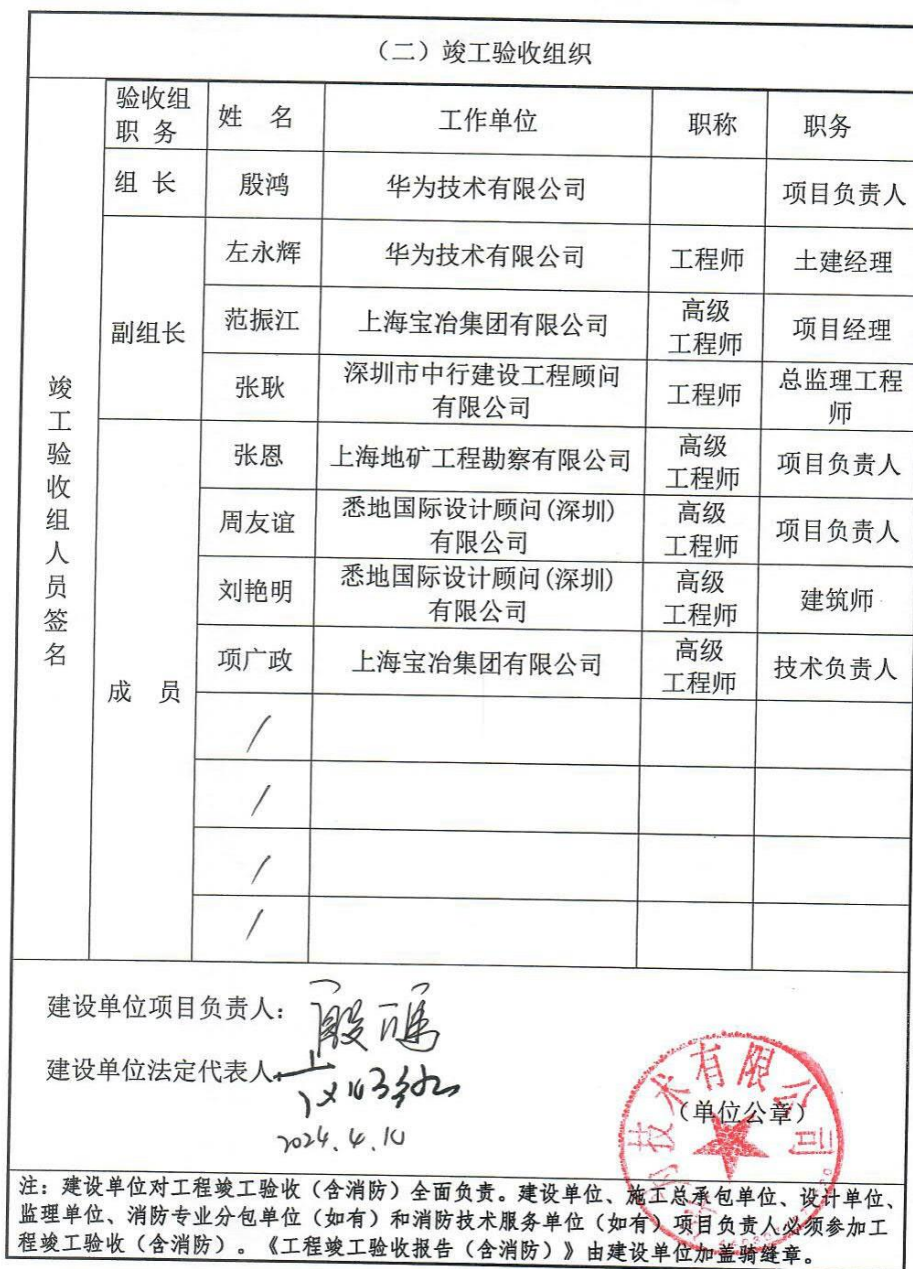 （二）竣工验收组织
竣工验收组人员签名
验收组
职 务
姓 名
工作单位
职称
职务
组 长
殷鸿
华为技术有限公司
项目负责人
副组长
左永辉
华为技术有限公司
工程师
土建经理
范振江
上海宝冶集团有限公司
高级
工程师
项目经理
张耿
深圳市中行建设工程顾问
有限公司
工程师
总监理工程
师
成 员
张恩
上海地矿工程勘察有限公司
高级
工程师
项目负责人
周友谊
悉地国际设计顾问(深圳)
有限公司
高级
工程师
项目负责人
刘艳明
悉地国际设计顾问(深圳)
有限公司
高级
工程师
建筑师
项广政
上海宝冶集团有限公司
高级
工程师
技术负责人
/
/
/
/
建设单位项目负责人：殷鸿
建设单位法定代表人：
2024.4.10
（单位公章）
技术有限公司
注：建设单位对工程竣工验收（含消防）全面负责。建设单位、施工总承包单位、设计单位、
监理单位、消防专业分包单位（如有）和消防技术服务单位（如有）项目负责人必须参加工
程竣工验收（含消防）。《工程竣工验收报告（含消防）》由建设单位加盖骑缝章。